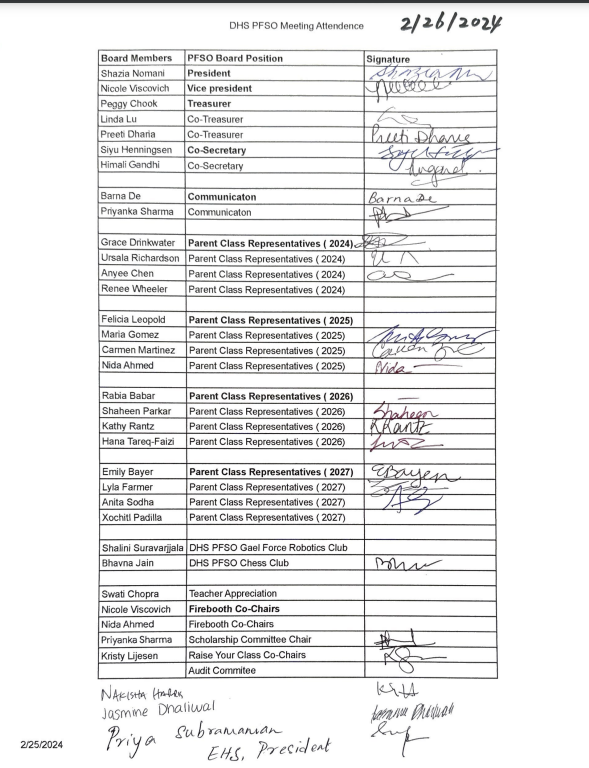 DHS PFSO Meeting Attendence 2/26/2024
Board Members PFSO Board Position Signature
Shazia Nomani President
Nicole Viscovich Vice president
Peggy Chook Treasurer
Linda Lu Co-Treasurer
Preeti Dharia Co-Treasurer Preeti Dharia
Siyu Henningsen Co-Secretary
Himali Gandhi Co-Secretary
Barna De Communicaton Barna De
Priyanka Sharma Communicaton
Grace Drinkwater Parent Class Representatives ( 2024)
Ursala Richardson Parent Class Representatives ( 2024)
Anyee Chen Parent Class Representatives ( 2024)
Renee Wheeler Parent Class Representatives ( 2024)
Felicia Leopold Parent Class Representatives ( 2025)
Maria Gomez Parent Class Representatives ( 2025)
Carmen Martinez Parent Class Representatives ( 2025)
Nida Ahmed Parent Class Representatives ( 2025) Nida
Rabia Babar Parent Class Representatives ( 2026)
Shaheen Parkar Parent Class Representatives ( 2026) Shaheen
Kathy Rantz Parent Class Representatives ( 2026) KRantz
Hana Tareq-Faizi Parent Class Representatives ( 2026)
Emily Bayer Parent Class Representatives ( 2027) EBayer
Lyla Farmer Parent Class Representatives ( 2027)
Anita Sodha Parent Class Representatives ( 2027)
Xochitl Padilla Parent Class Representatives ( 2027)
Shalini Suravarjjala DHS PFSO Gael Force Robotics Club
Bhavna Jain DHS PFSO Chess Club
Swati Chopra Teacher Appreciation
Nicole Viscovich Firebooth Co-Chairs
Nida Ahmed Firebooth Co-Chairs
Priyanka Sharma Scholarship Committee Chair
Kristy Lijesen Raise Your Class Co-Chairs
Audit Commitee
Nakisha
Jasmine Dhaliwal Jasmine Dhaliwal
Priya Subramanian
EHS, President
2/25/2024